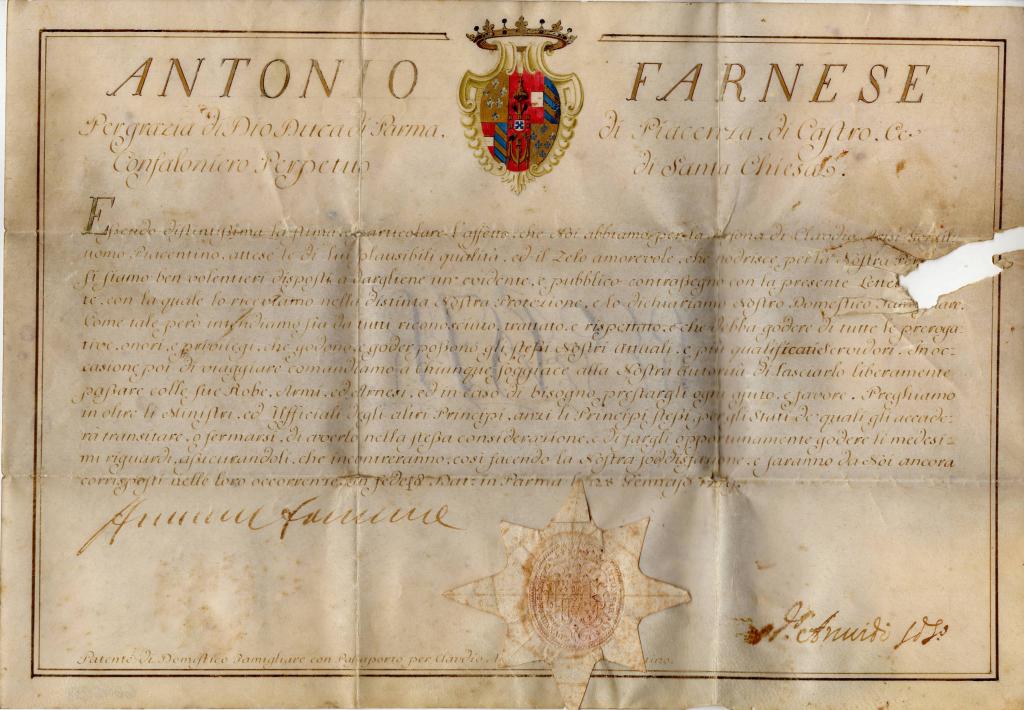 ANTONIO FARNESE
Per grazia di Dio Duca di Parma, di Piacenza, di Castro, &c.
Confaloniero Perpetuo di Santa Chiesa &.
Essendo distintissima la stima, e particolare l'affetto, che Noi abbiamo per la persona di Claudio Gentil,,
uomo Piacentino, attese le di lui plausibili qualità, ed il Zelo amorevole, che nodrisce per la Nostra
Si siamo ben volentieri disposti a dargliene un' evidente, e pubblico contrassegno con la presente
te, con la quale lo riceviamo nella distinta Nostra Protezione, e lo dichiariamo Nostro Domestico
Come tale però intendiamo sia da tutti riconosciuto, trattato, e rispettato, e che debba godere di tutte le preroga
tive, onori, e privilegi, che godono, e goder possono gli stessi Nostri attuali, e più qualificati Servidori. In oc,,
casione poi di viaggiare comandiamo a chiunque soggiace alla Nostra autorità di lasciarlo liberamente
passare colle sue Robe, Armi, ed Arnesi, ed in caso di bisogno prestargli ogni ajuto, e favore. Preghiamo
in oltre li Ministri, ed Uffiziali degli altri Principi, anzi li Principi stessi, per gli Stati de' quali gli accade,,
rà transitare, o fermarsi, di averlo nella stessa considerazione, e di fargli opportunamente godere li medesi=
mi riguardi, assicurandoli, che incontreranno, così facendo la Nostra soddisfazione, e saranno da Noi ancora
corrisposti nelle loro occorrenze. In fede &. Dat. in Parma li 28 Gennajo
Antonio Farnese
Patente di Domestico Famigliare con Passaporto per Claudio